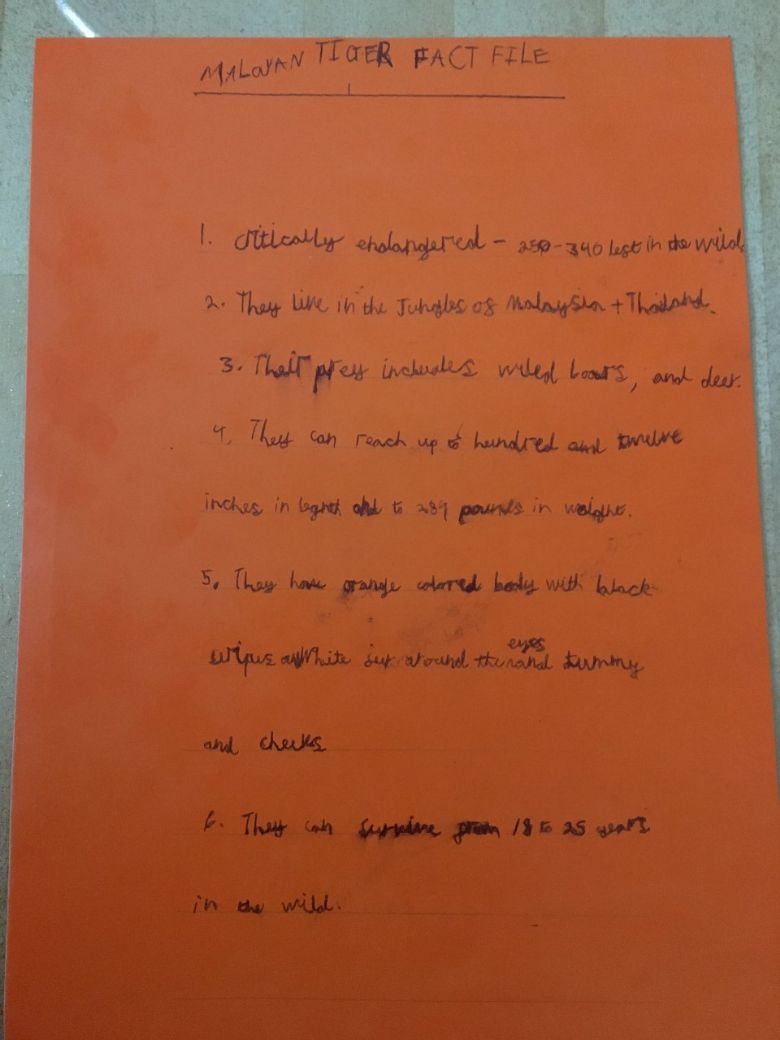 MALAYAN TIGER FACT FILE
1. critically endangered - 250-340 left in the wild.
2. They live in the Jungles of Malaysia + Thailand.
3. Their prey includes wiled boars, and deer.
4. They can reach up to hundred and twelve
inches in legnth and to 289 pounds in weight.
5. They have orange colored body with black
stripes white fur around the eyes and tummy
and cheeks
6. They can survive from 18 to 25 years
in the wild.